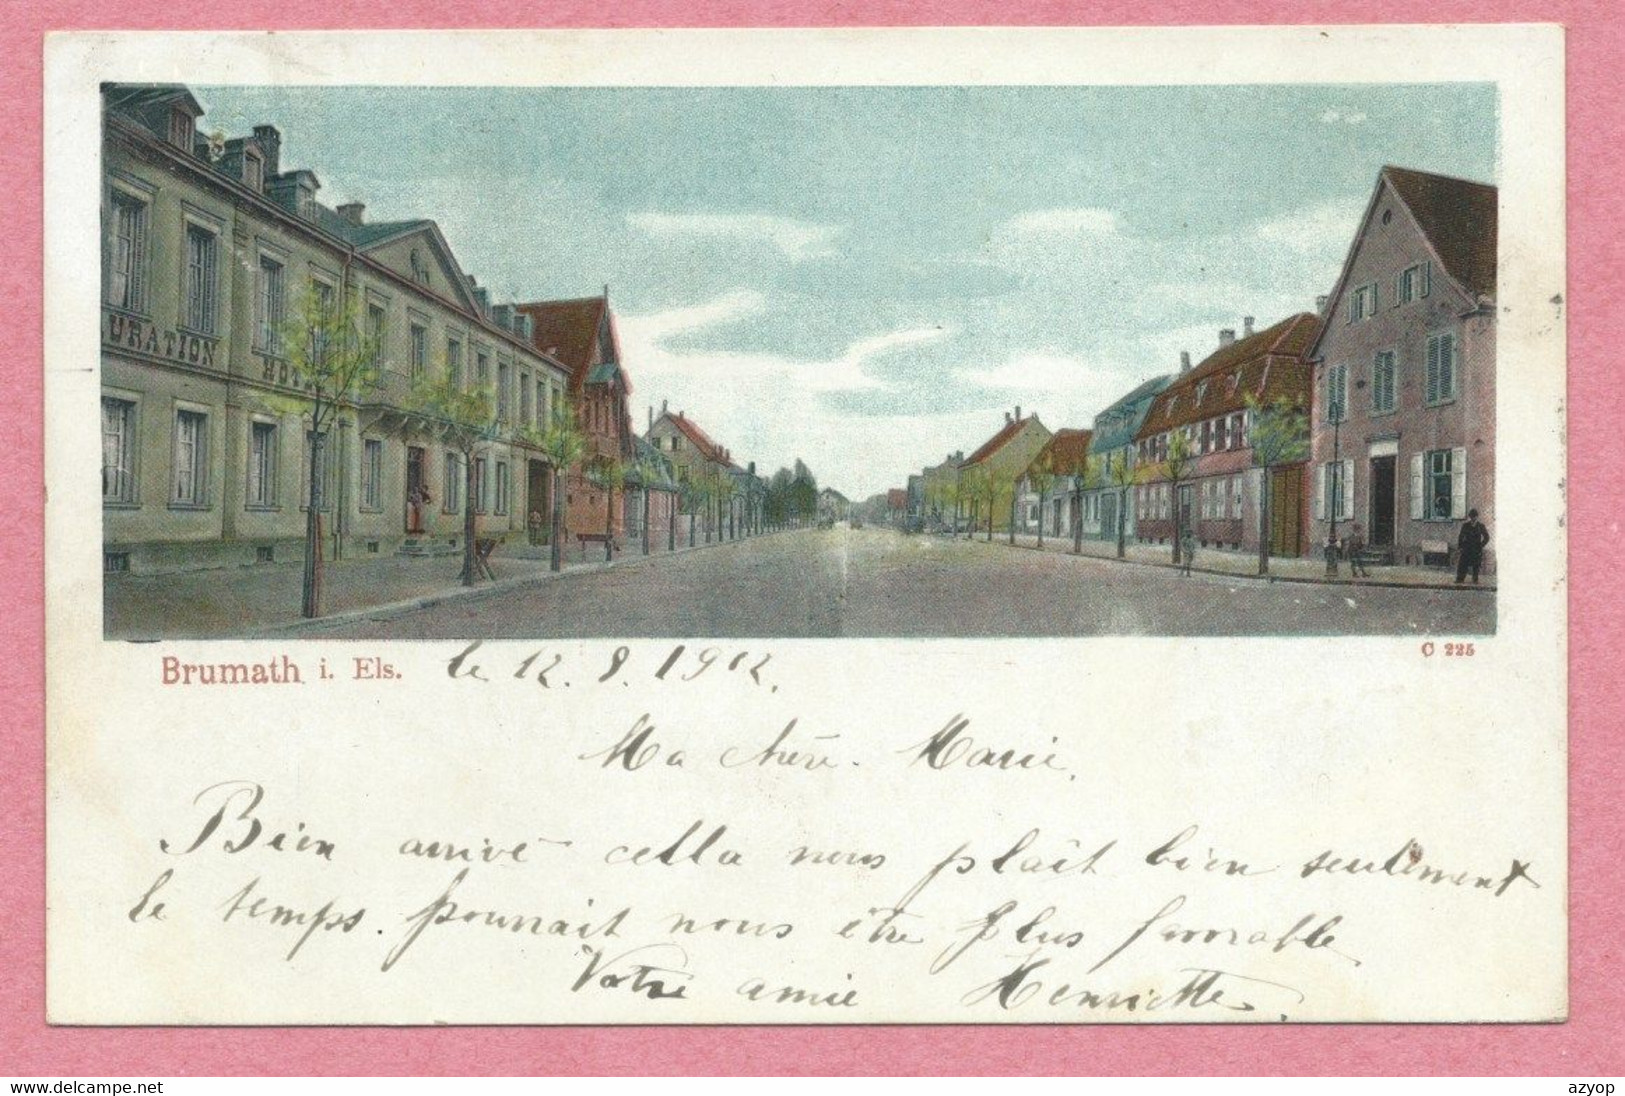 URATION
HOTEL
Brumath i. Els.
C 225
le 12. 8. 1902.
Ma chère. Marie.
Bien arrivé cella nous plaît bien seulement
le temps. pourrait nous être plus favorable
Votre amie Henriette.
www.delcampe.net
azyop